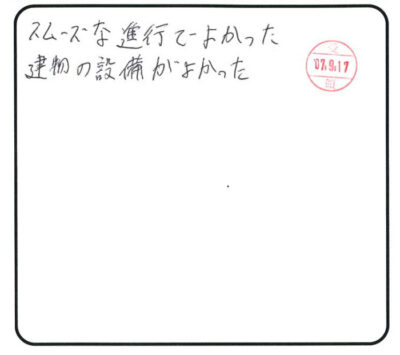 スムーズな進行でよかった
建物の設備がよかった
07.9.17